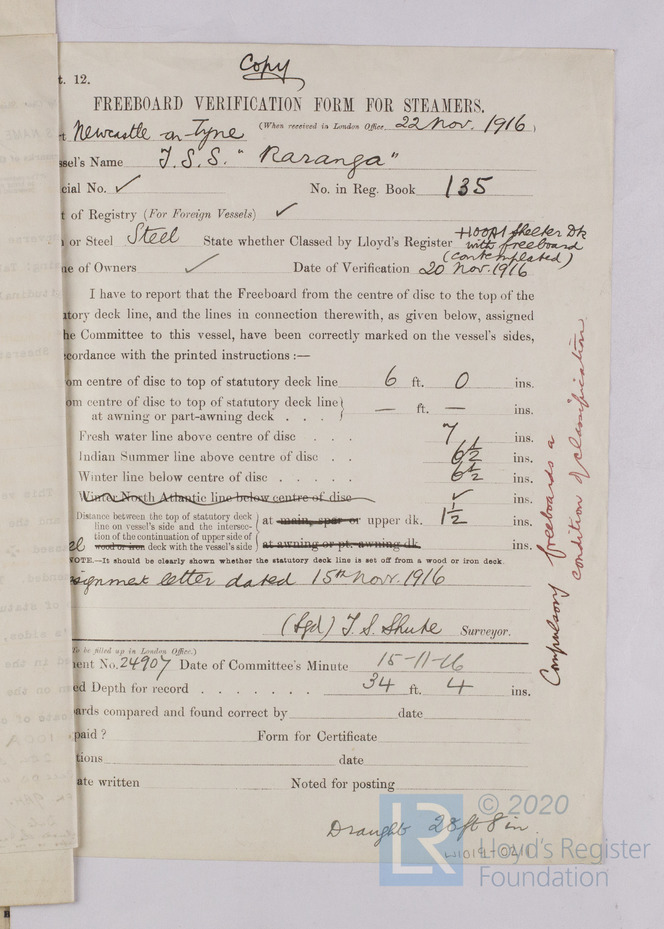 Copy
t. 12.
FREEBOARD VERIFICATION FORM FOR STEAMERS.
t Newcastle-on-Tyne (When received in London Office 22 Nov. 1916)
ssel's Name T.S.S. "Raranga"
cial No. ✓ No. in Reg. Book 135
t of Registry (For Foreign Vessels) ✓
or Steel Steel State whether Classed by Lloyd's Register +100A1 Shelter Dk
with freeboard
(contemplated)
e of Owners ✓ Date of Verification 20 Nov. 1916
I have to report that the Freeboard from the centre of disc to the top of the
tory deck line, and the lines in connection therewith, as given below, assigned
he Committee to this vessel, have been correctly marked on the vessel's sides,
ccordance with the printed instructions :—
om centre of disc to top of statutory deck line 6 ft. 0 ins.
om centre of disc to top of statutory deck line
at awning or part-awning deck . . . — ft. — ins.
Fresh water line above centre of disc . . . 7 ins.
Indian Summer line above centre of disc . . 6½ ins.
Winter line below centre of disc . . . . . 6½ ins.
Winter North Atlantic line below centre of disc ✓ ins.
Distance between the top of statutory deck
line on vessel's side and the intersec-
tion of the continuation of upper side of
wood or iron deck with the vessel's side
at main, spar or upper dk. 1½ ins.
el
at awning or pt. awning dk. ins.
NOTE.—It should be clearly shown whether the statutory deck line is set off from a wood or iron deck.
signment letter dated 15th Nov. 1916
(Sgd) T. S. Shute Surveyor.
To be filled up in London Office.)
ent No. 24907 Date of Committee's Minute 15-11-16
ed Depth for record . . . . . . . 34 ft. 4 ins.
ards compared and found correct by date
paid ? Form for Certificate
tions date
ate written Noted for posting
Draught 28 ft 8 in
W1019-0211
Compulsory freeboards a
condition of classification
LR
© 2020
Lloyd's Register
Foundation